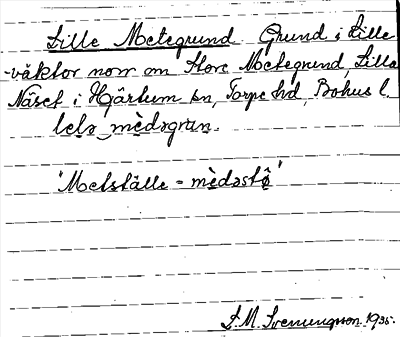 Lille Metegrund. Grund i Lille
-väktor norr om Store Metegrund, Lilla
Näset i Hjärtum sn, Torpe hd, Bohus l.
lelə mèdəgrun.
"Metställe = mèdəstḁ̊"
S. M. Svenungsson. 1935.